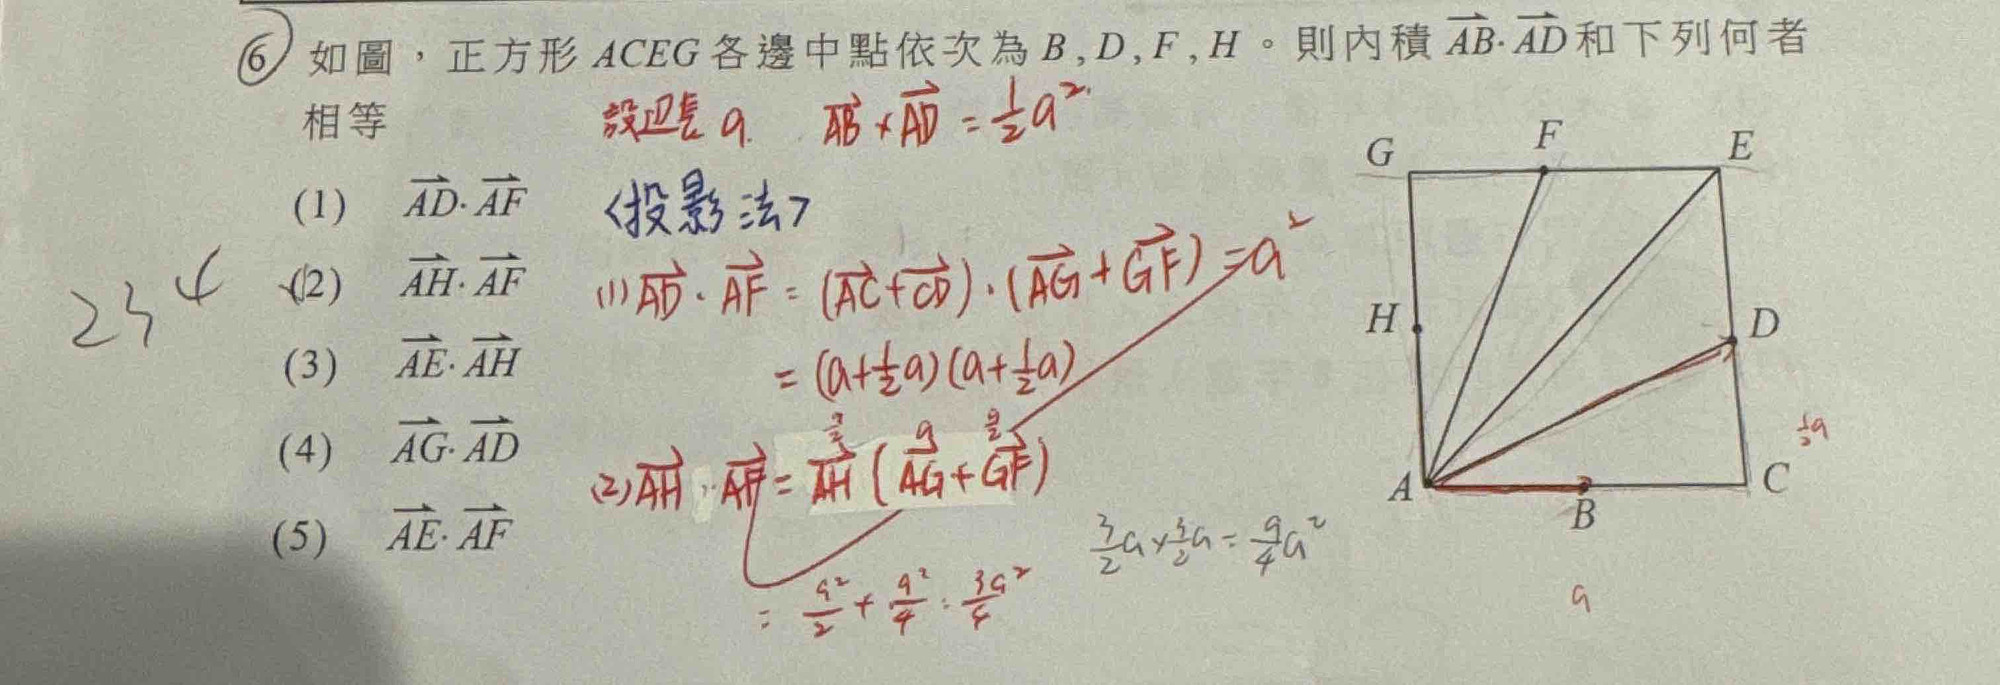 ⑥ 如圖，正方形 ACEG 各邊中點依次為 B , D , F , H 。則內積 $\overrightarrow{AB}\cdot\overrightarrow{AD}$ 和下列何者
相等
設邊長 a. $\overrightarrow{AB}\times\overrightarrow{AD}=\frac{1}{2}a^2$
(1) $\overrightarrow{AD}\cdot\overrightarrow{AF}$
<投影法>
(2) $\overrightarrow{AH}\cdot\overrightarrow{AF}$
(1) $\overrightarrow{AD}\cdot\overrightarrow{AF}=(\overrightarrow{AC}+\overrightarrow{CD})\cdot(\overrightarrow{AG}+\overrightarrow{GF})=a^2$
2 3 4
(3) $\overrightarrow{AE}\cdot\overrightarrow{AH}$
$=(a+\frac{1}{2}a)(a+\frac{1}{2}a)$
(4) $\overrightarrow{AG}\cdot\overrightarrow{AD}$
$\frac{a}{2}$ a $\frac{a}{2}$
(2) $\overrightarrow{AH}\cdot\overrightarrow{AF}=\overrightarrow{AH}(\overrightarrow{AG}+\overrightarrow{GF})$
(5) $\overrightarrow{AE}\cdot\overrightarrow{AF}$
$\frac{3}{2}a\times\frac{3}{2}a=\frac{9}{4}a^2$
$=\frac{a^2}{2}+\frac{a^2}{4}=\frac{3a^2}{4}$
G F E
H D
$\frac{1}{2}a$
A B C
a